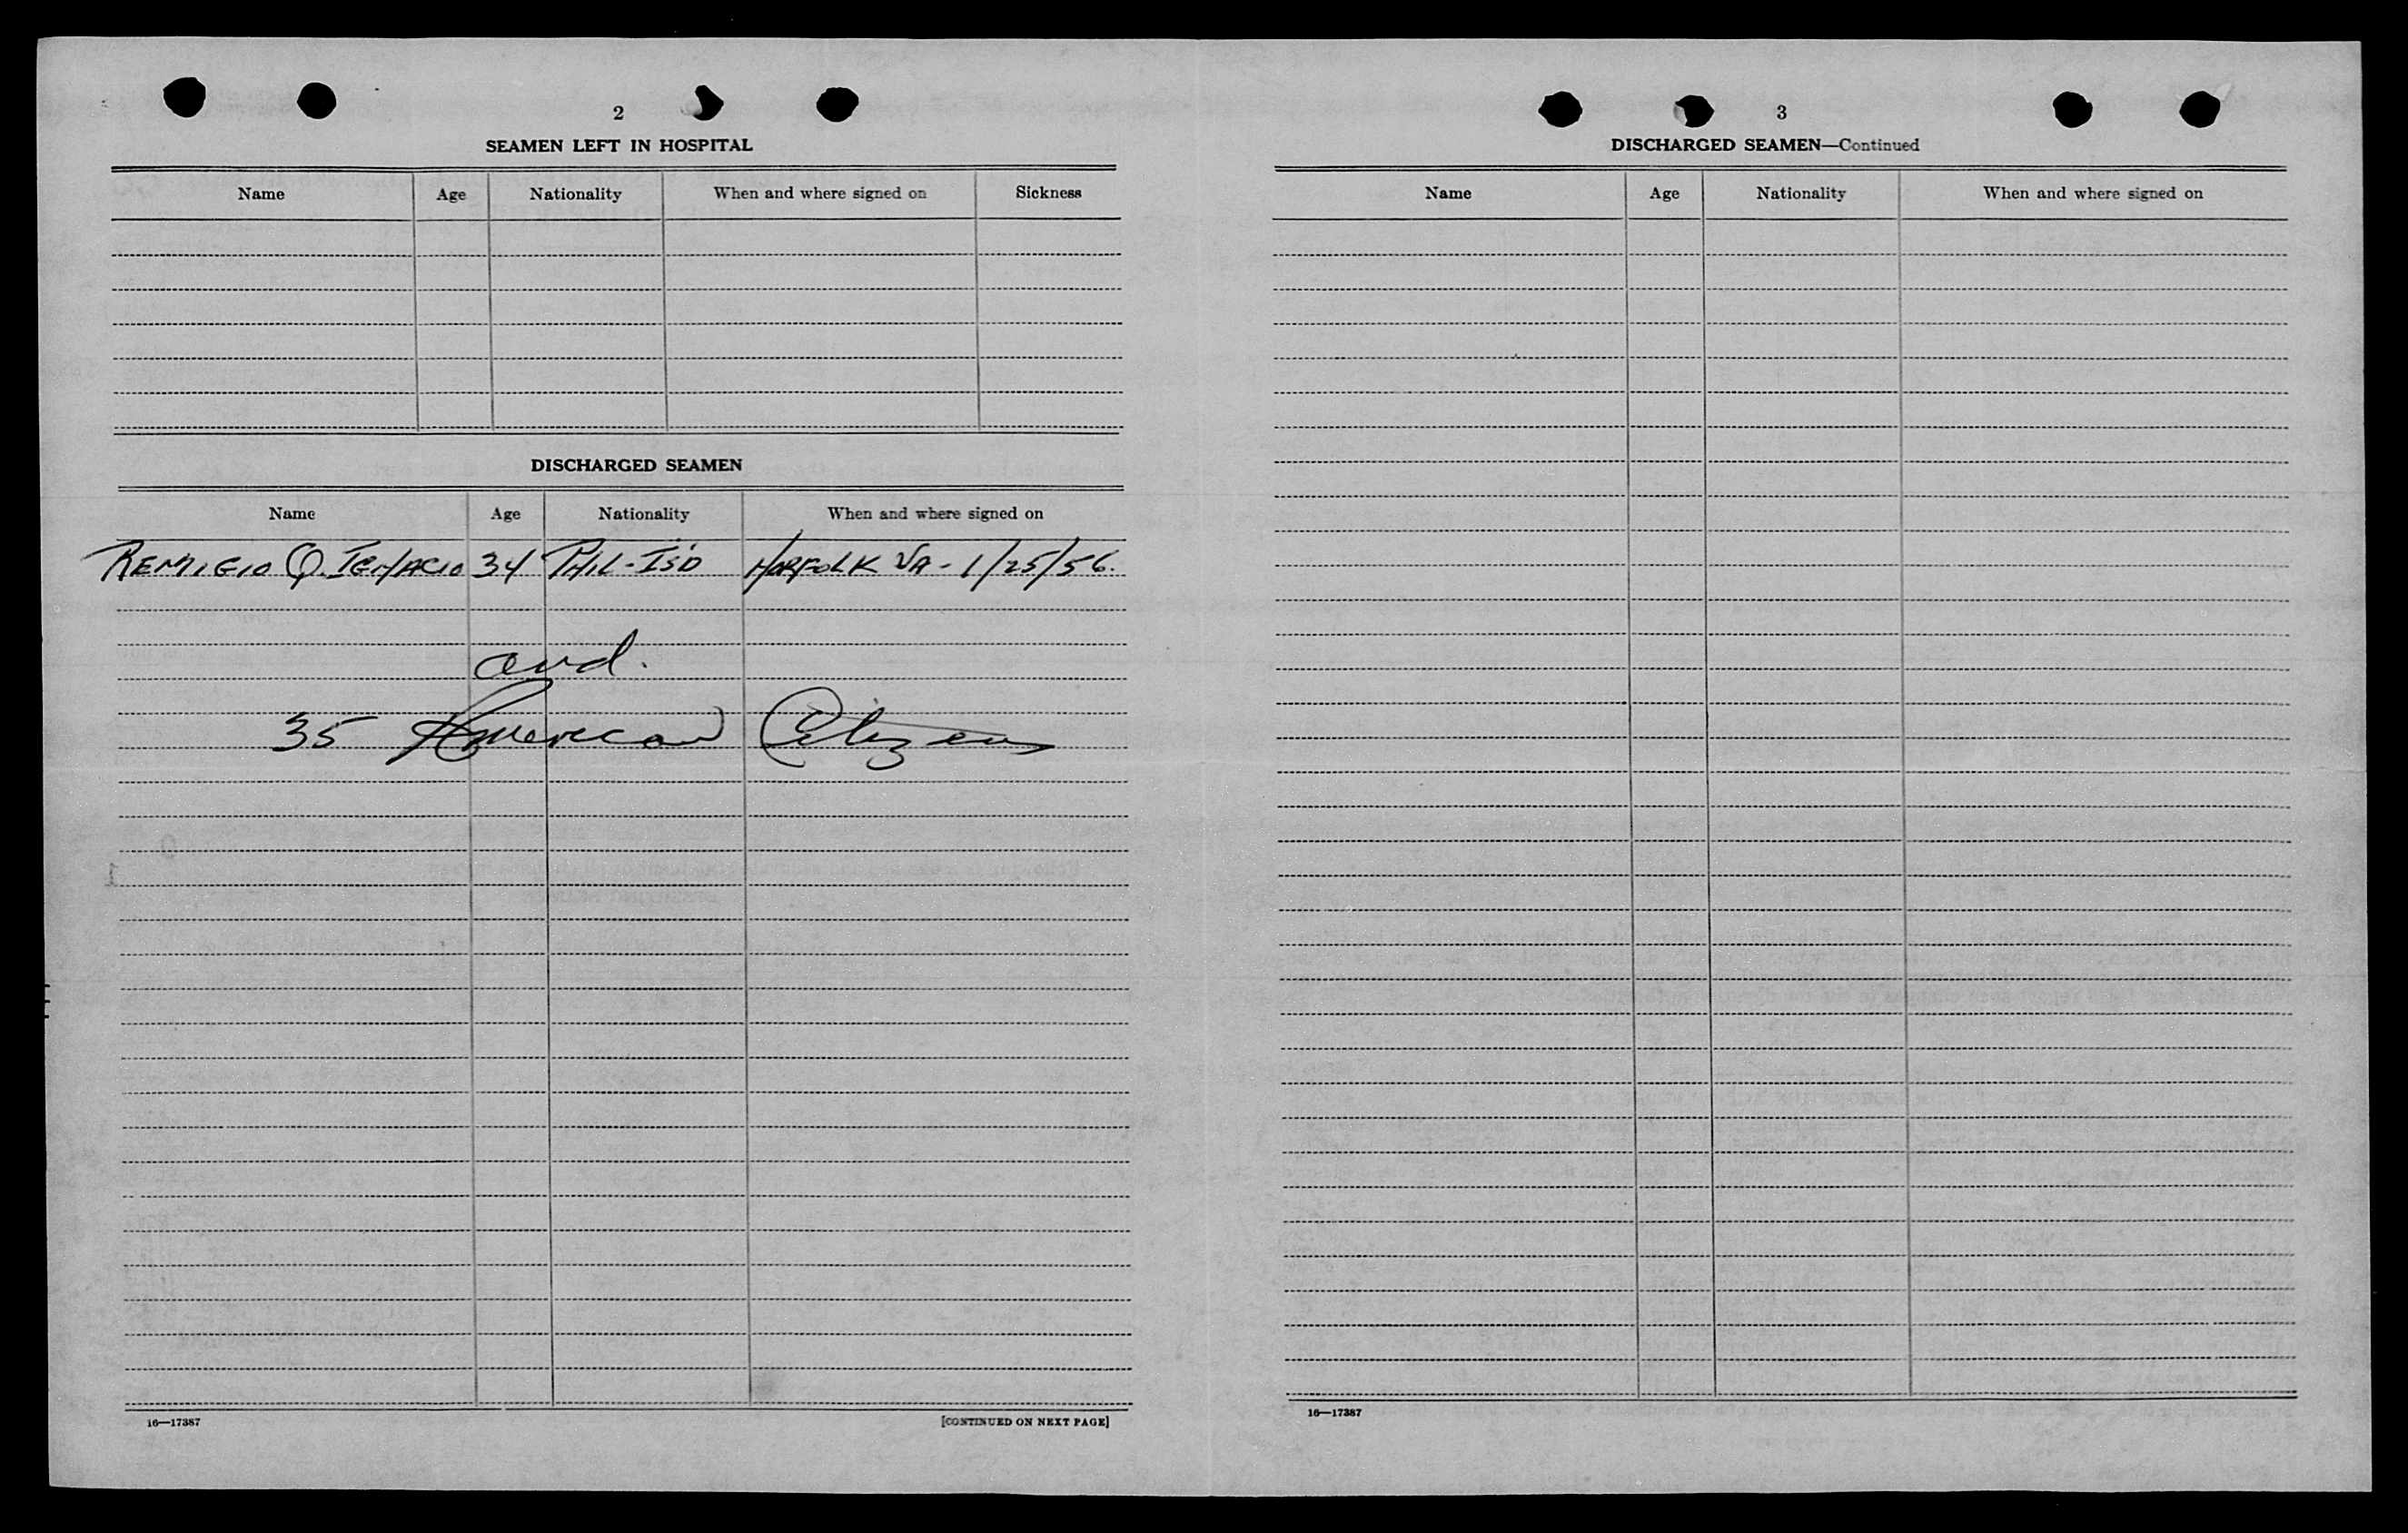 2
SEAMEN LEFT IN HOSPITAL
Name Age Nationality When and where signed on Sickness
DISCHARGED SEAMEN
Name Age Nationality When and where signed on
REMIGIO Q. IGNACIO 34 PHIL-IS'D NORFOLK VA - 1/25/56.
and.
35 American Citizens
16—17387 [CONTINUED ON NEXT PAGE]
3
DISCHARGED SEAMEN—Continued
Name Age Nationality When and where signed on
16—17387